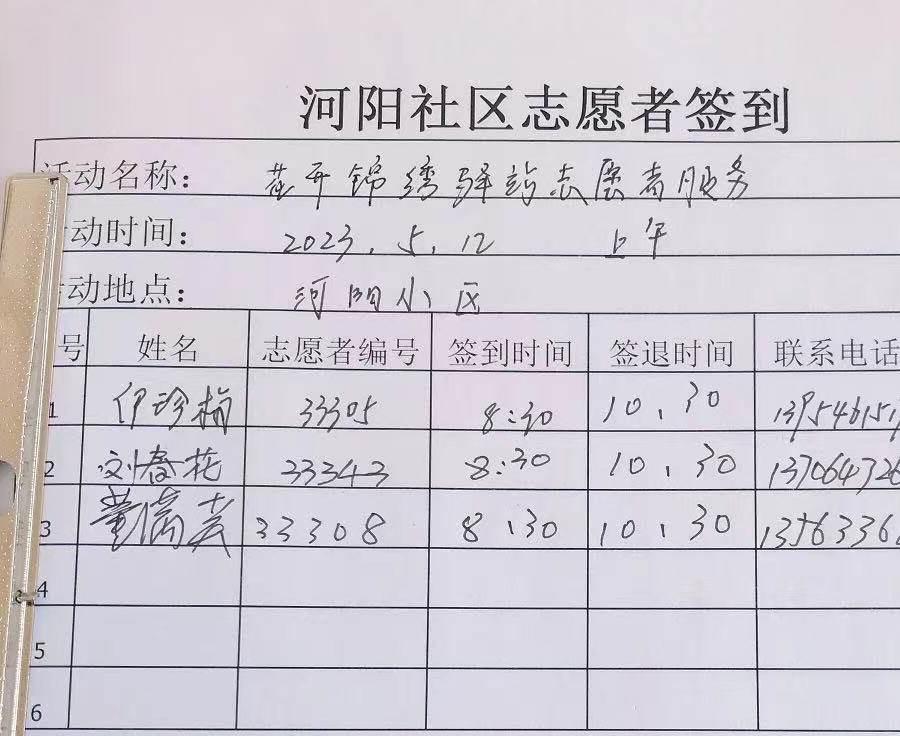 河阳社区志愿者签到
活动名称： 花开锦绣驿站志愿者服务
动时间： 2023.5.12 上午
动地点： 河阳小区
号 姓名 志愿者编号 签到时间 签退时间 联系电话
1 伊珍梅 33305 8:30 10.30 139546151
2 刘春花 33343 8:30 10.30 137064726
3 董 33308 8.30 10.30 1356336
4
5
6